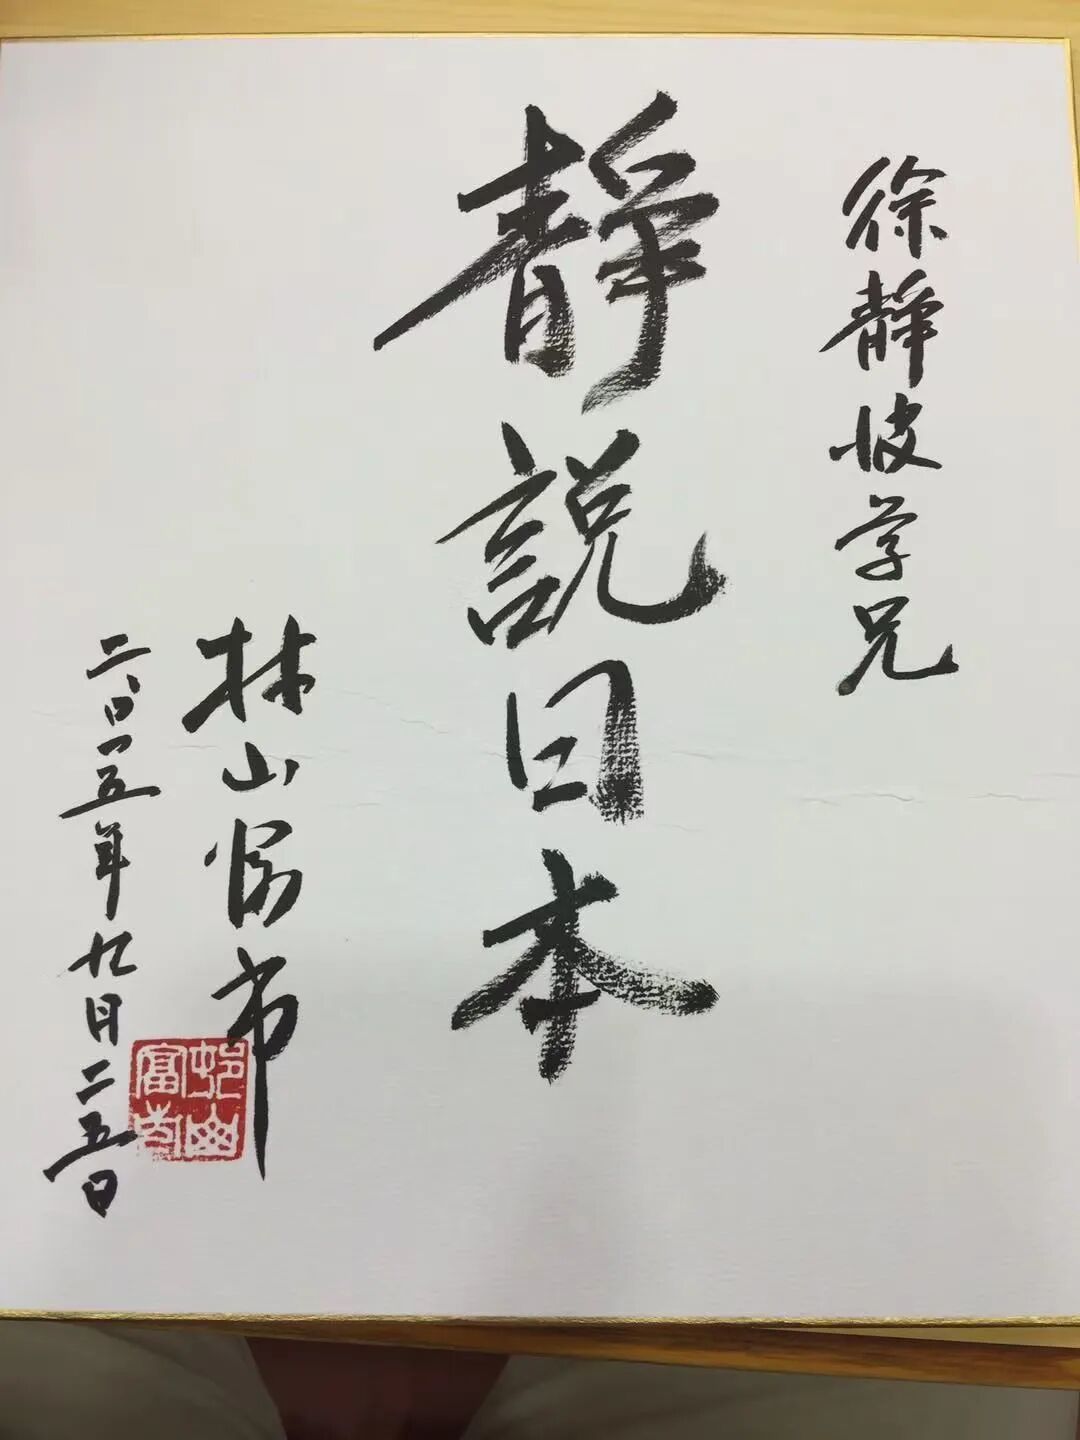 徐静波学兄
静説日本
村山富市
二〇一五年九月二五日
邨山富市